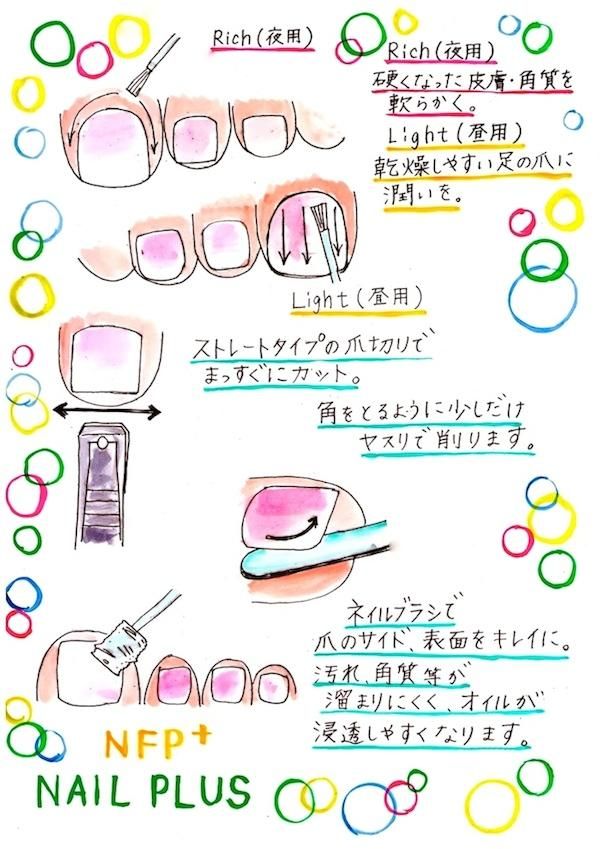 Rich(夜用)
Rich(夜用)
硬くなった皮膚・角質を
軟らかく。
Light(昼用)
乾燥しやすい足の爪に
潤いを。
Light(昼用)
ストレートタイプの爪切りで
まっすぐにカット。
角をとるように少しだけ
ヤスリで削ります。
ネイルブラシで
爪のサイド、表面をキレイに。
汚れ、角質等が
溜まりにくく、オイルが
浸透しやすくなります。
NFP+
NAIL PLUS